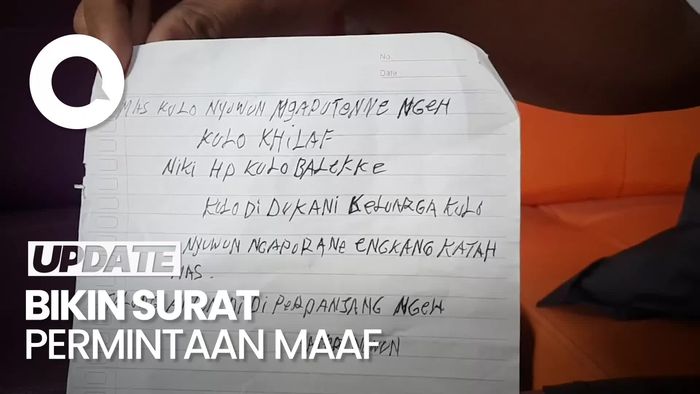 No.
Date
MAS KULO NYUWUN NGAPUTENNE NGEH
KULO KHILAF
NIKI HP KULO BALEKKE
KULO DI DUKANI KELUARGA KULO
NYUWUN NGAPORANE ENGKANG KATAH
MAS.
DI PERPANJANG NGEH
UPDATE
BIKIN SURAT
PERMINTAAN MAAF